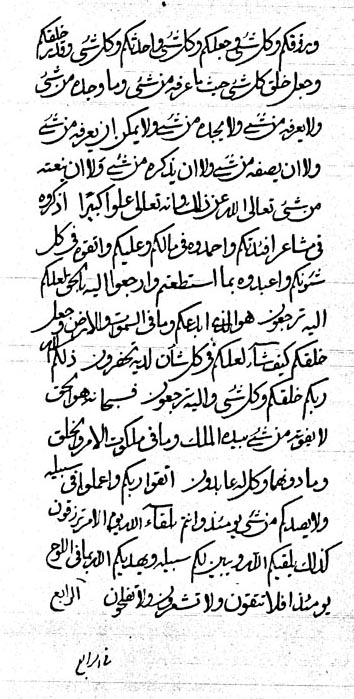 ويرزقكم وكل شئ وجعلكم وكل شئ واحدثكم وكل شئ وقدر خلقكم
وجعل خلق كل شئ حيث ما عرفه من شئ وما وجده من شئ
ولا يعرفه من شئ ولا يجده من شئ ولا يمكن ان يعرفه من شئ
ولا ان يصفه من شئ ولا ان يذكره من شئ ولا ان ينعته
من شئ تعالى الله عن ذلك سبحانه تعالى علوا كبيرا اذكروه
في مشاعر افئدتكم واحمدوه في مالكم وعليكم واتقوه في كل
شئونكم واعبدوه بما استطعتم وارجعوا اليه بالحق لعلكم
اليه ترجعون هو الذي ابدعكم وما في السموات والارض وجعل
خلقكم كيف شاء لعلكم في كل شأن لديه تحضرون ذلكم الله
ربكم خلقكم وكل شئ واليه ترجعون فسبحانه هو الحق
لا يفوته من شئ بيده الملك وما في ملكوت الامر والخلق
وما دونهما وكل له عابدون اتقوا ربكم واعملوا في سبيله
ولا يصدنكم من شئ يومئذ وانتم بلقاء الله يوم الامر ترزقون
كذلك يلقيكم الله ويبين لكم سبيله ويهديكم الله بما في اللوح
يومئذ افلا تتقون ولا تشعرون ولا تفلحون الرابع
في الرابع